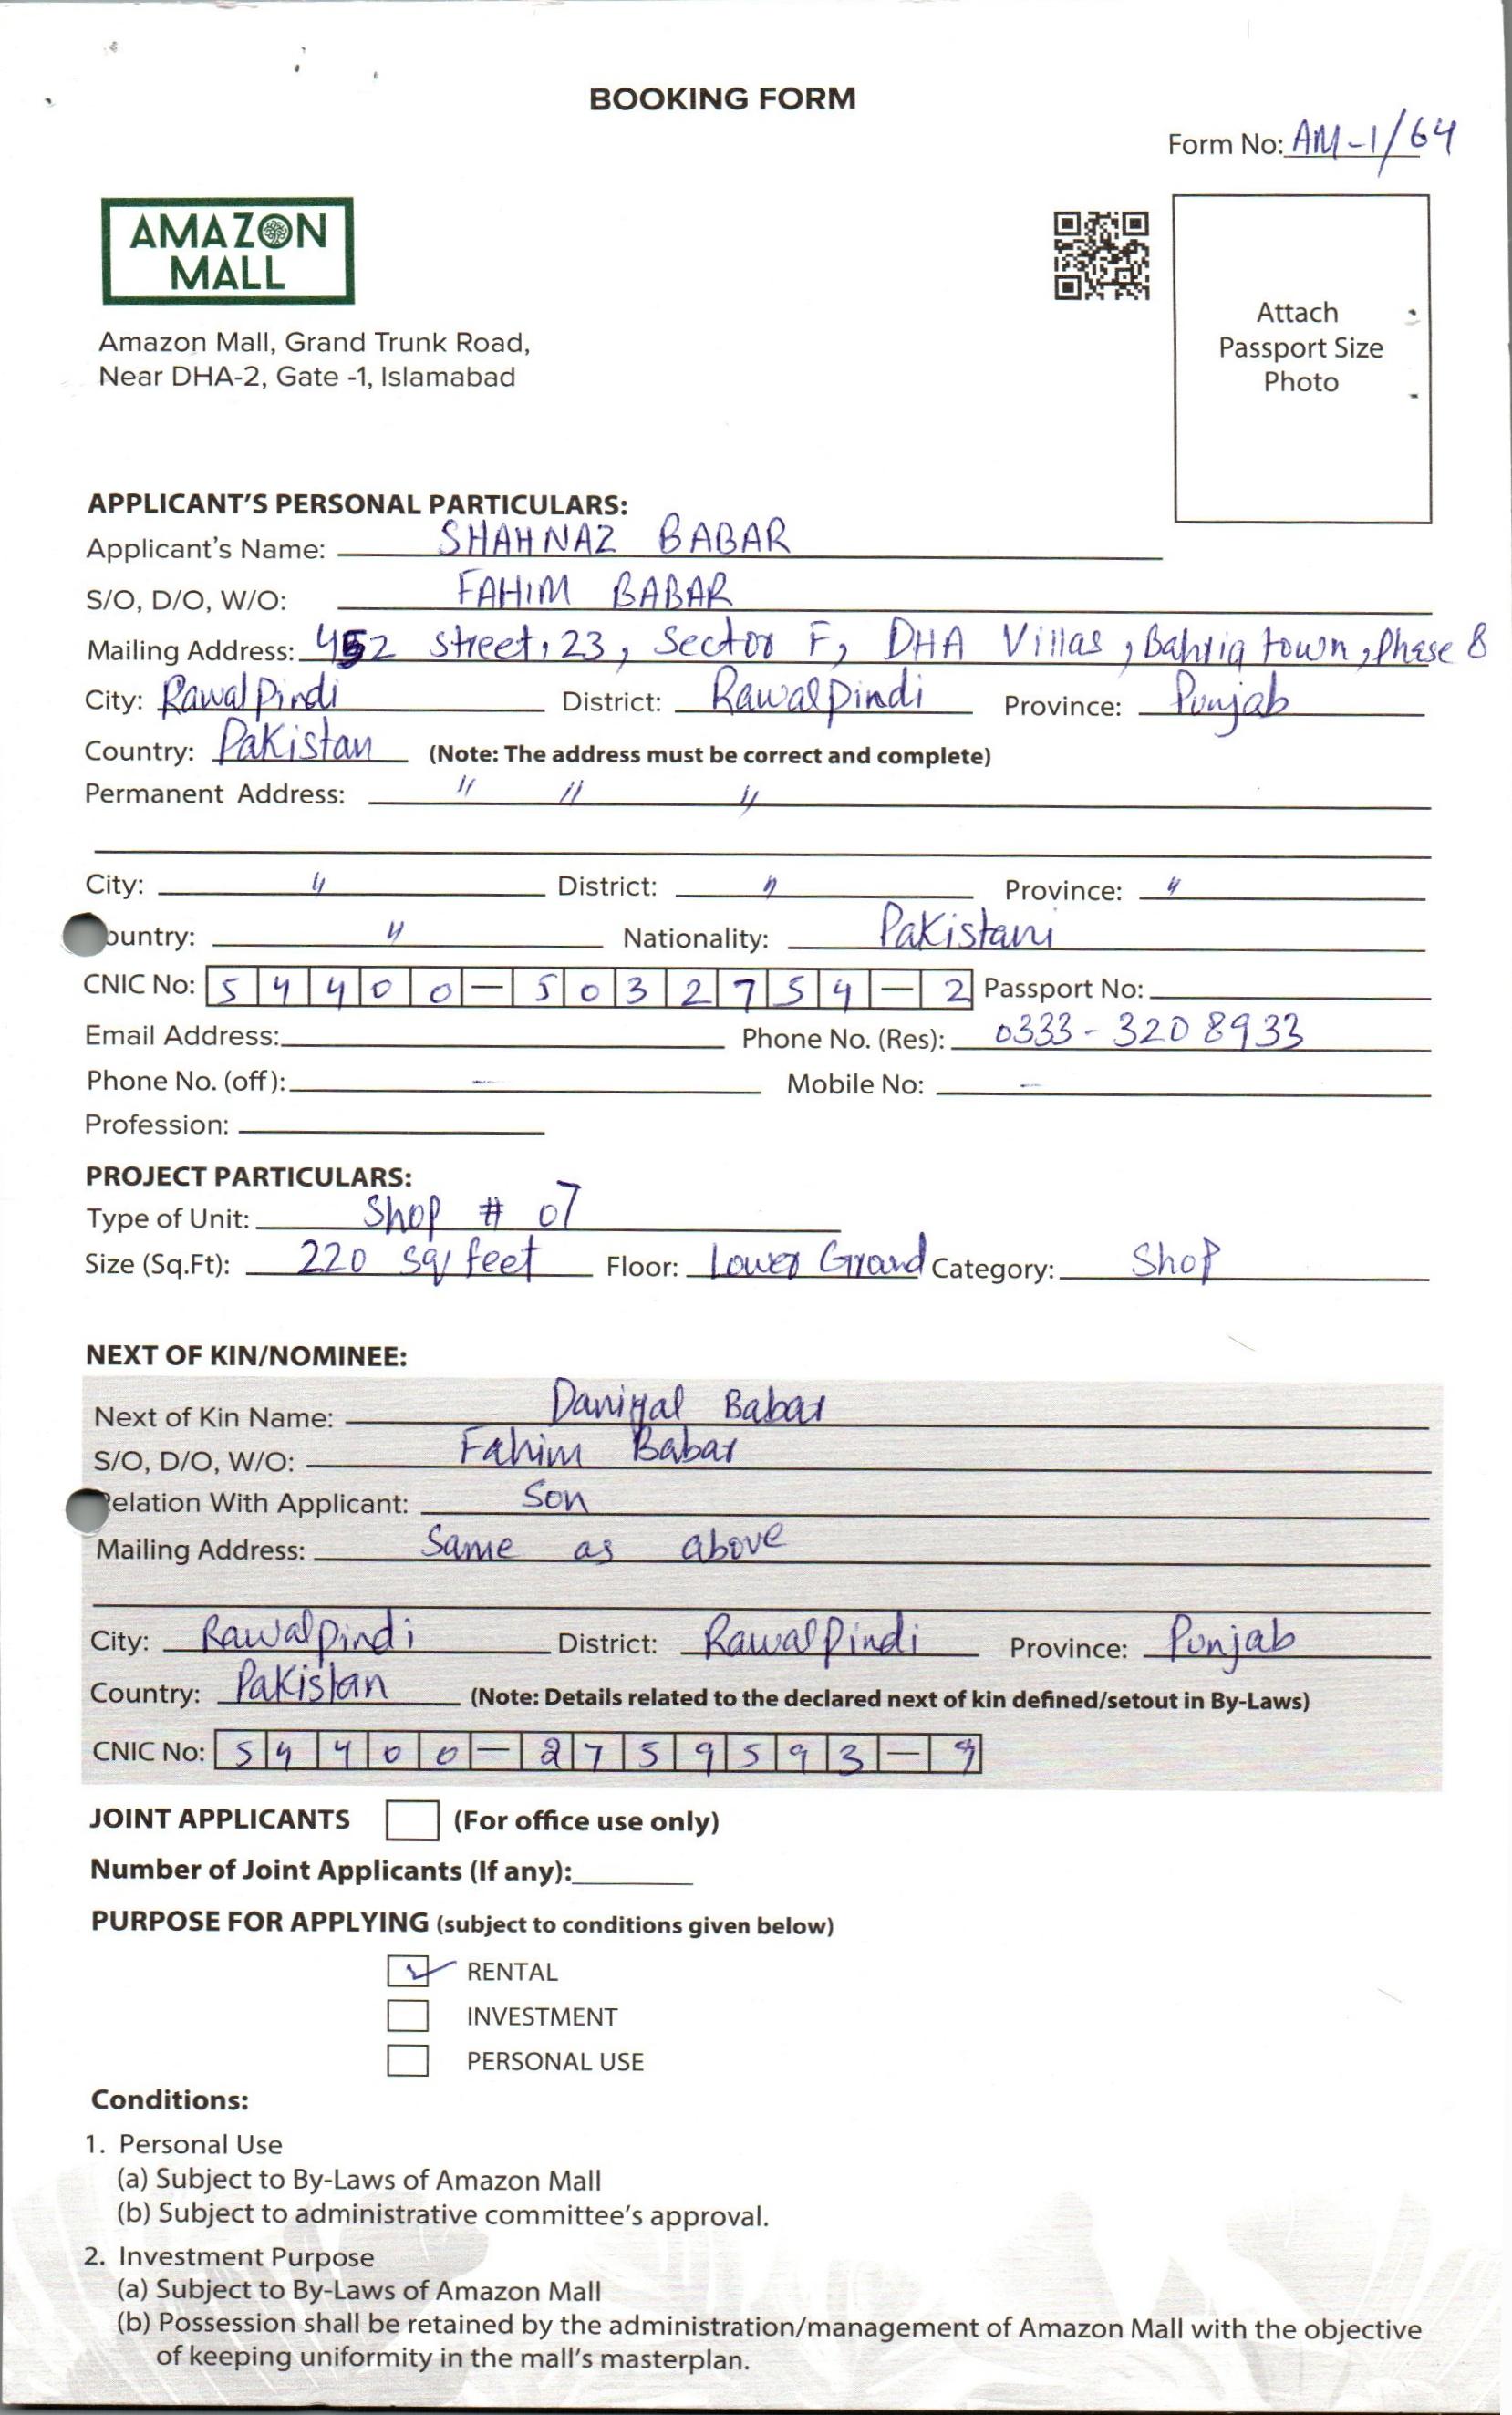 BOOKING FORM
Form No: AM-1/64
AMAZON
MALL
Amazon Mall, Grand Trunk Road,
Near DHA-2, Gate -1, Islamabad
Attach
Passport Size
Photo
APPLICANT'S PERSONAL PARTICULARS:
Applicant's Name: SHAHNAZ BABAR
S/O, D/O, W/O: FAHIM BABAR
Mailing Address: 452 street, 23, Sector F, DHA Villas, Bahria town, Phase 8
City: RawalPindi District: RawalPindi Province: Punjab
Country: Pakistan (Note: The address must be correct and complete)
Permanent Address: " " "
City: " District: " Province: "
ountry: " Nationality: Pakistani
CNIC No: 54400-5032754-2 Passport No:
Email Address: Phone No. (Res): 0333-3208933
Phone No. (off): - Mobile No: -
Profession:
PROJECT PARTICULARS:
Type of Unit: Shop # 07
Size (Sq.Ft): 220 sq/feet Floor: Lower Grand Category: Shop
NEXT OF KIN/NOMINEE:
Next of Kin Name: Daniyal Babar
S/O, D/O, W/O: Fahim Babar
Relation With Applicant: Son
Mailing Address: Same as above
City: RawalPindi District: RawalPindi Province: Punjab
Country: Pakistan (Note: Details related to the declared next of kin defined/setout in By-Laws)
CNIC No: 54400-2759593-9
JOINT APPLICANTS (For office use only)
Number of Joint Applicants (If any):
PURPOSE FOR APPLYING (subject to conditions given below)
RENTAL
INVESTMENT
PERSONAL USE
Conditions:
1. Personal Use
(a) Subject to By-Laws of Amazon Mall
(b) Subject to administrative committee's approval.
2. Investment Purpose
(a) Subject to By-Laws of Amazon Mall
(b) Possession shall be retained by the administration/management of Amazon Mall with the objective
of keeping uniformity in the mall's masterplan.